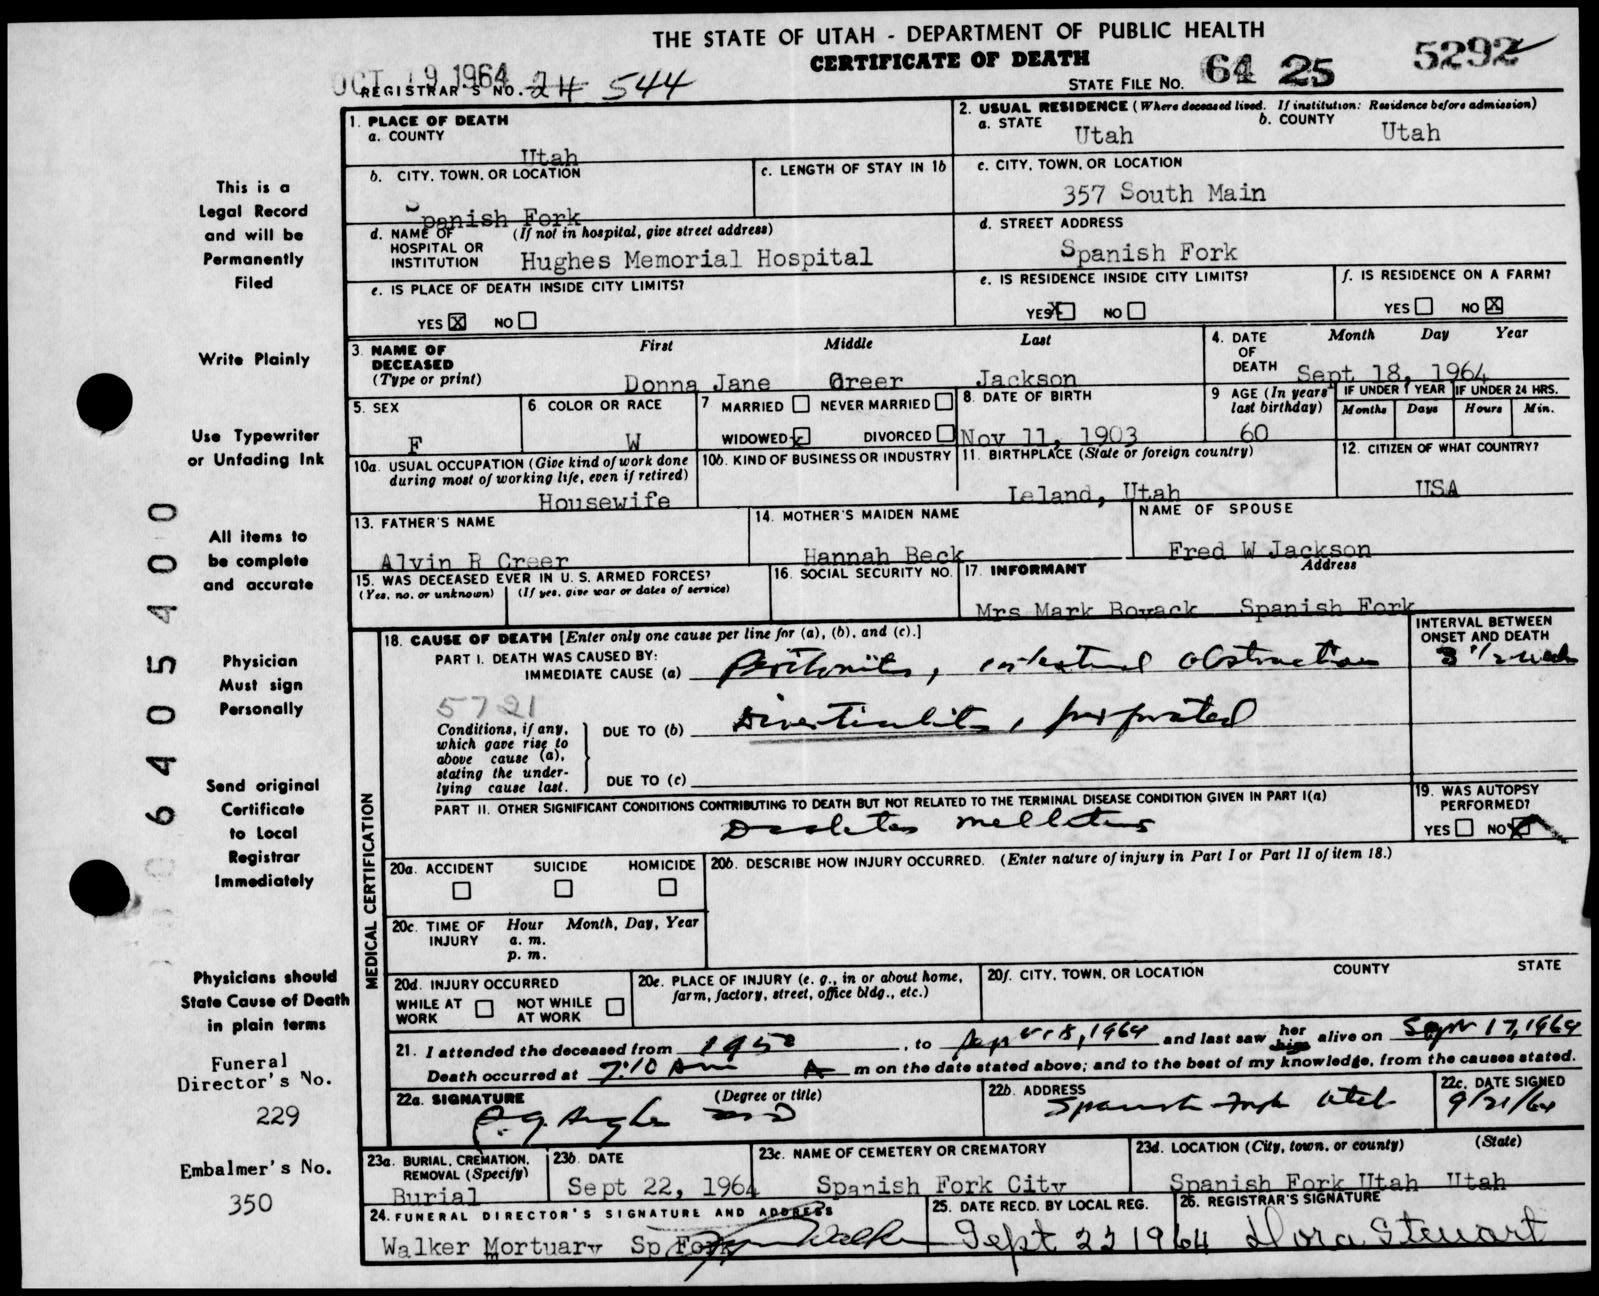 THE STATE OF UTAH - DEPARTMENT OF PUBLIC HEALTH
CERTIFICATE OF DEATH
OCT 19 1964
REGISTRAR'S NO. 24 544
STATE FILE NO. 64 25 5292
This is a
Legal Record
and will be
Permanently
Filed
Write Plainly
Use Typewriter
or Unfading Ink
All items to
be complete
and accurate
Physician
Must sign
Personally
Send original
Certificate
to Local
Registrar
Immediately
Physicians should
State Cause of Death
in plain terms
Funeral
Director's No.
229
Embalmer's No.
350
6405400
1. PLACE OF DEATH
a. COUNTY
Utah
2. USUAL RESIDENCE (Where deceased lived. If institution: Residence before admission)
a. STATE Utah
b. COUNTY Utah
b. CITY, TOWN, OR LOCATION
Spanish Fork
c. LENGTH OF STAY IN 1b
c. CITY, TOWN, OR LOCATION
357 South Main
d. NAME OF HOSPITAL OR INSTITUTION (If not in hospital, give street address)
Hughes Memorial Hospital
d. STREET ADDRESS
Spanish Fork
e. IS PLACE OF DEATH INSIDE CITY LIMITS?
YES X NO
e. IS RESIDENCE INSIDE CITY LIMITS?
YES X NO
f. IS RESIDENCE ON A FARM?
YES NO X
3. NAME OF DECEASED (Type or print)
First Middle Last
Donna Jane Creer Jackson
4. DATE OF DEATH Month Day Year
Sept 18, 1964
5. SEX
F
6 COLOR OR RACE
W
7 MARRIED NEVER MARRIED
WIDOWED x DIVORCED
8. DATE OF BIRTH
Nov 11, 1903
9 AGE (In years last birthday)
60
IF UNDER 1 YEAR IF UNDER 24 HRS.
Months Days Hours Min.
10a. USUAL OCCUPATION (Give kind of work done during most of working life, even if retired)
Housewife
10b. KIND OF BUSINESS OR INDUSTRY
11. BIRTHPLACE (State or foreign country)
Leland, Utah
12. CITIZEN OF WHAT COUNTRY?
USA
13. FATHER'S NAME
Alvin R Creer
14. MOTHER'S MAIDEN NAME
Hannah Beck
NAME OF SPOUSE
Fred W Jackson
15. WAS DECEASED EVER IN U. S. ARMED FORCES?
(Yes, no, or unknown) (If yes, give war or dates of service)
16. SOCIAL SECURITY NO.
17. INFORMANT Address
Mrs Mark Boyack Spanish Fork
MEDICAL CERTIFICATION
18. CAUSE OF DEATH [Enter only one cause per line for (a), (b), and (c).]
INTERVAL BETWEEN ONSET AND DEATH
PART I. DEATH WAS CAUSED BY:
IMMEDIATE CAUSE (a) Peritonitis, intestinal obstruction 3 1/2 weeks
5721
Conditions, if any, which gave rise to above cause (a), stating the underlying cause last.
DUE TO (b) Diverticulitis, perforated
DUE TO (c)
PART II. OTHER SIGNIFICANT CONDITIONS CONTRIBUTING TO DEATH BUT NOT RELATED TO THE TERMINAL DISEASE CONDITION GIVEN IN PART I(a)
Diabetes mellitus
19. WAS AUTOPSY PERFORMED?
YES NO X
20a. ACCIDENT SUICIDE HOMICIDE
20b. DESCRIBE HOW INJURY OCCURRED. (Enter nature of injury in Part I or Part II of item 18.)
20c. TIME OF INJURY Hour Month, Day, Year
a. m.
p. m.
20d. INJURY OCCURRED
WHILE AT WORK NOT WHILE AT WORK
20e. PLACE OF INJURY (e. g., in or about home, farm, factory, street, office bldg., etc.)
20f. CITY, TOWN, OR LOCATION COUNTY STATE
21. I attended the deceased from 1950, to Sept 18, 1964 and last saw her him alive on Sept 17, 1964
Death occurred at 7:10 Am A m on the date stated above; and to the best of my knowledge, from the causes stated.
22a. SIGNATURE (Degree or title)
Hughes MD
22b. ADDRESS
Spanish Fork Utah
22c. DATE SIGNED
9/21/64
23a. BURIAL, CREMATION, REMOVAL (Specify)
Burial
23b DATE
Sept 22, 1964
23c. NAME OF CEMETERY OR CREMATORY
Spanish Fork City
23d. LOCATION (City, town, or county) (State)
Spanish Fork Utah Utah
24. FUNERAL DIRECTOR'S SIGNATURE AND ADDRESS
Walker Mortuary Sp Fork Walker
25. DATE RECD. BY LOCAL REG.
Sept 22 1964
26. REGISTRAR'S SIGNATURE
Dora Stewart